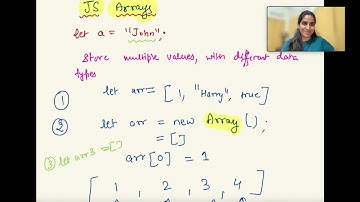 JS Arrays
let a = "John";
Store multiple values, with different data
types
① let arr = [1, "Harry", true]
② let arr = new Array();
= []
③ let arr3 = []
arr[0] = 1
[ 1, 2, 3, 4 ]